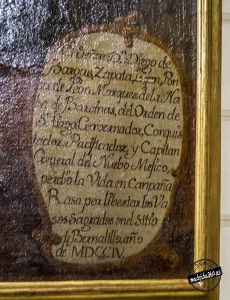 El Señor Dn. Diego de
Bargas, Zapata, Lujan, Pon
ce de Leon, Marques de la Na
ba de Barcinas, del Orden de
S.tiago, Governador, Conquis
tador, Pacificador, y Capitan
General del Nuebo Mejico,
perdio la Vida en Campaña
Rasa por libertar los Va
sos Sagrados en el Sitio
de Bernalillo año
de MDCCIV.